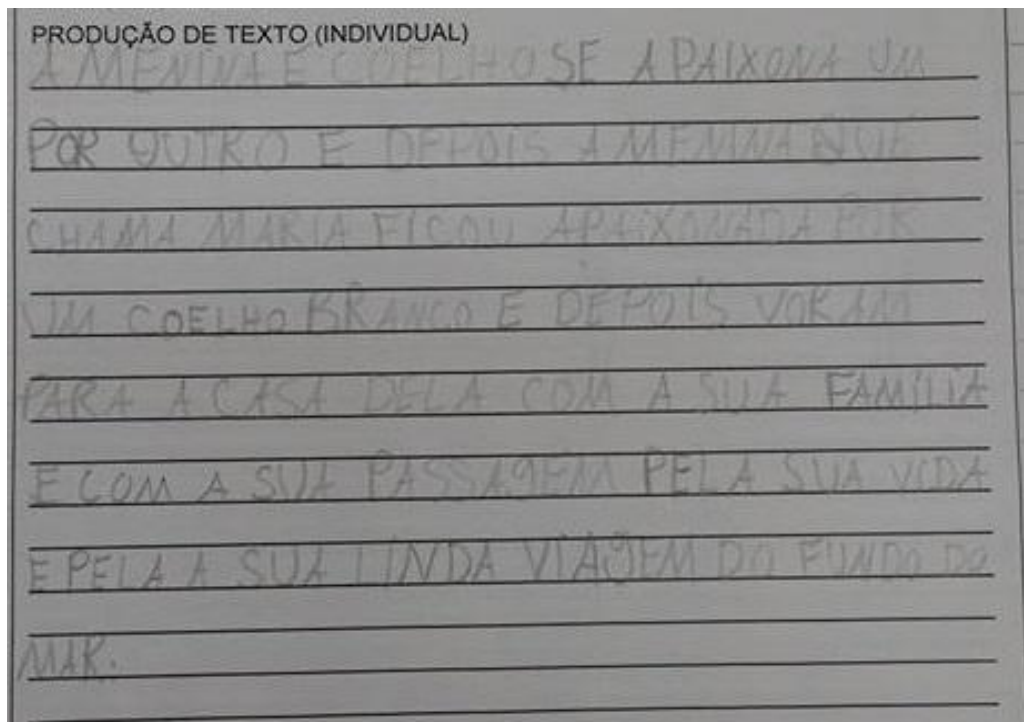 PRODUÇÃO DE TEXTO (INDIVIDUAL)
A MENINA E COELHO SE APAIXONA UM
POR OUTRO E DEPOIS A MENINA QUE
CHAMA MARIA FICOU APAIXONADA POR
UM COELHO BRANCO E DEPOIS VORAM
PARA A CASA DELA COM A SUA FAMÍLIA
E COM A SUA PASSAGEM PELA SUA VIDA
E PELA A SUA LINDA VIAGEM DO FUNDO DO
MAR.